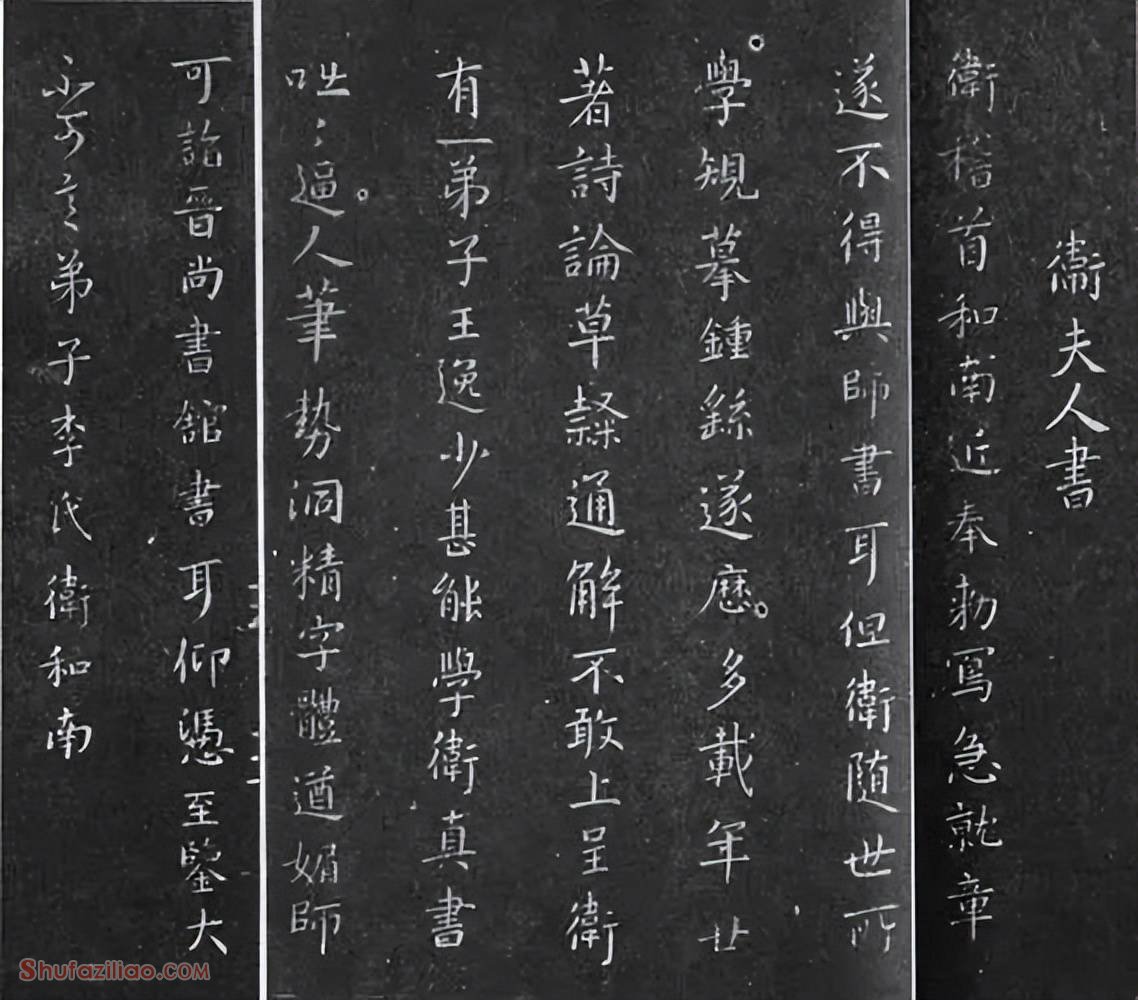 衛夫人書
衛稽首和南近奉勅寫急就章
遂不得與師書耳但衛隨世所
學規摹鍾繇遂歷多載年廿
著詩論草隸通解不敢上呈衛
有一弟子王逸少甚能學衛真書
咄〻逼人筆勢洞精字體遒媚師
可詣晉尚書館書耳仰憑至鑒大
不可言弟子李氏衛和南
SHUFAZILIAO.COM